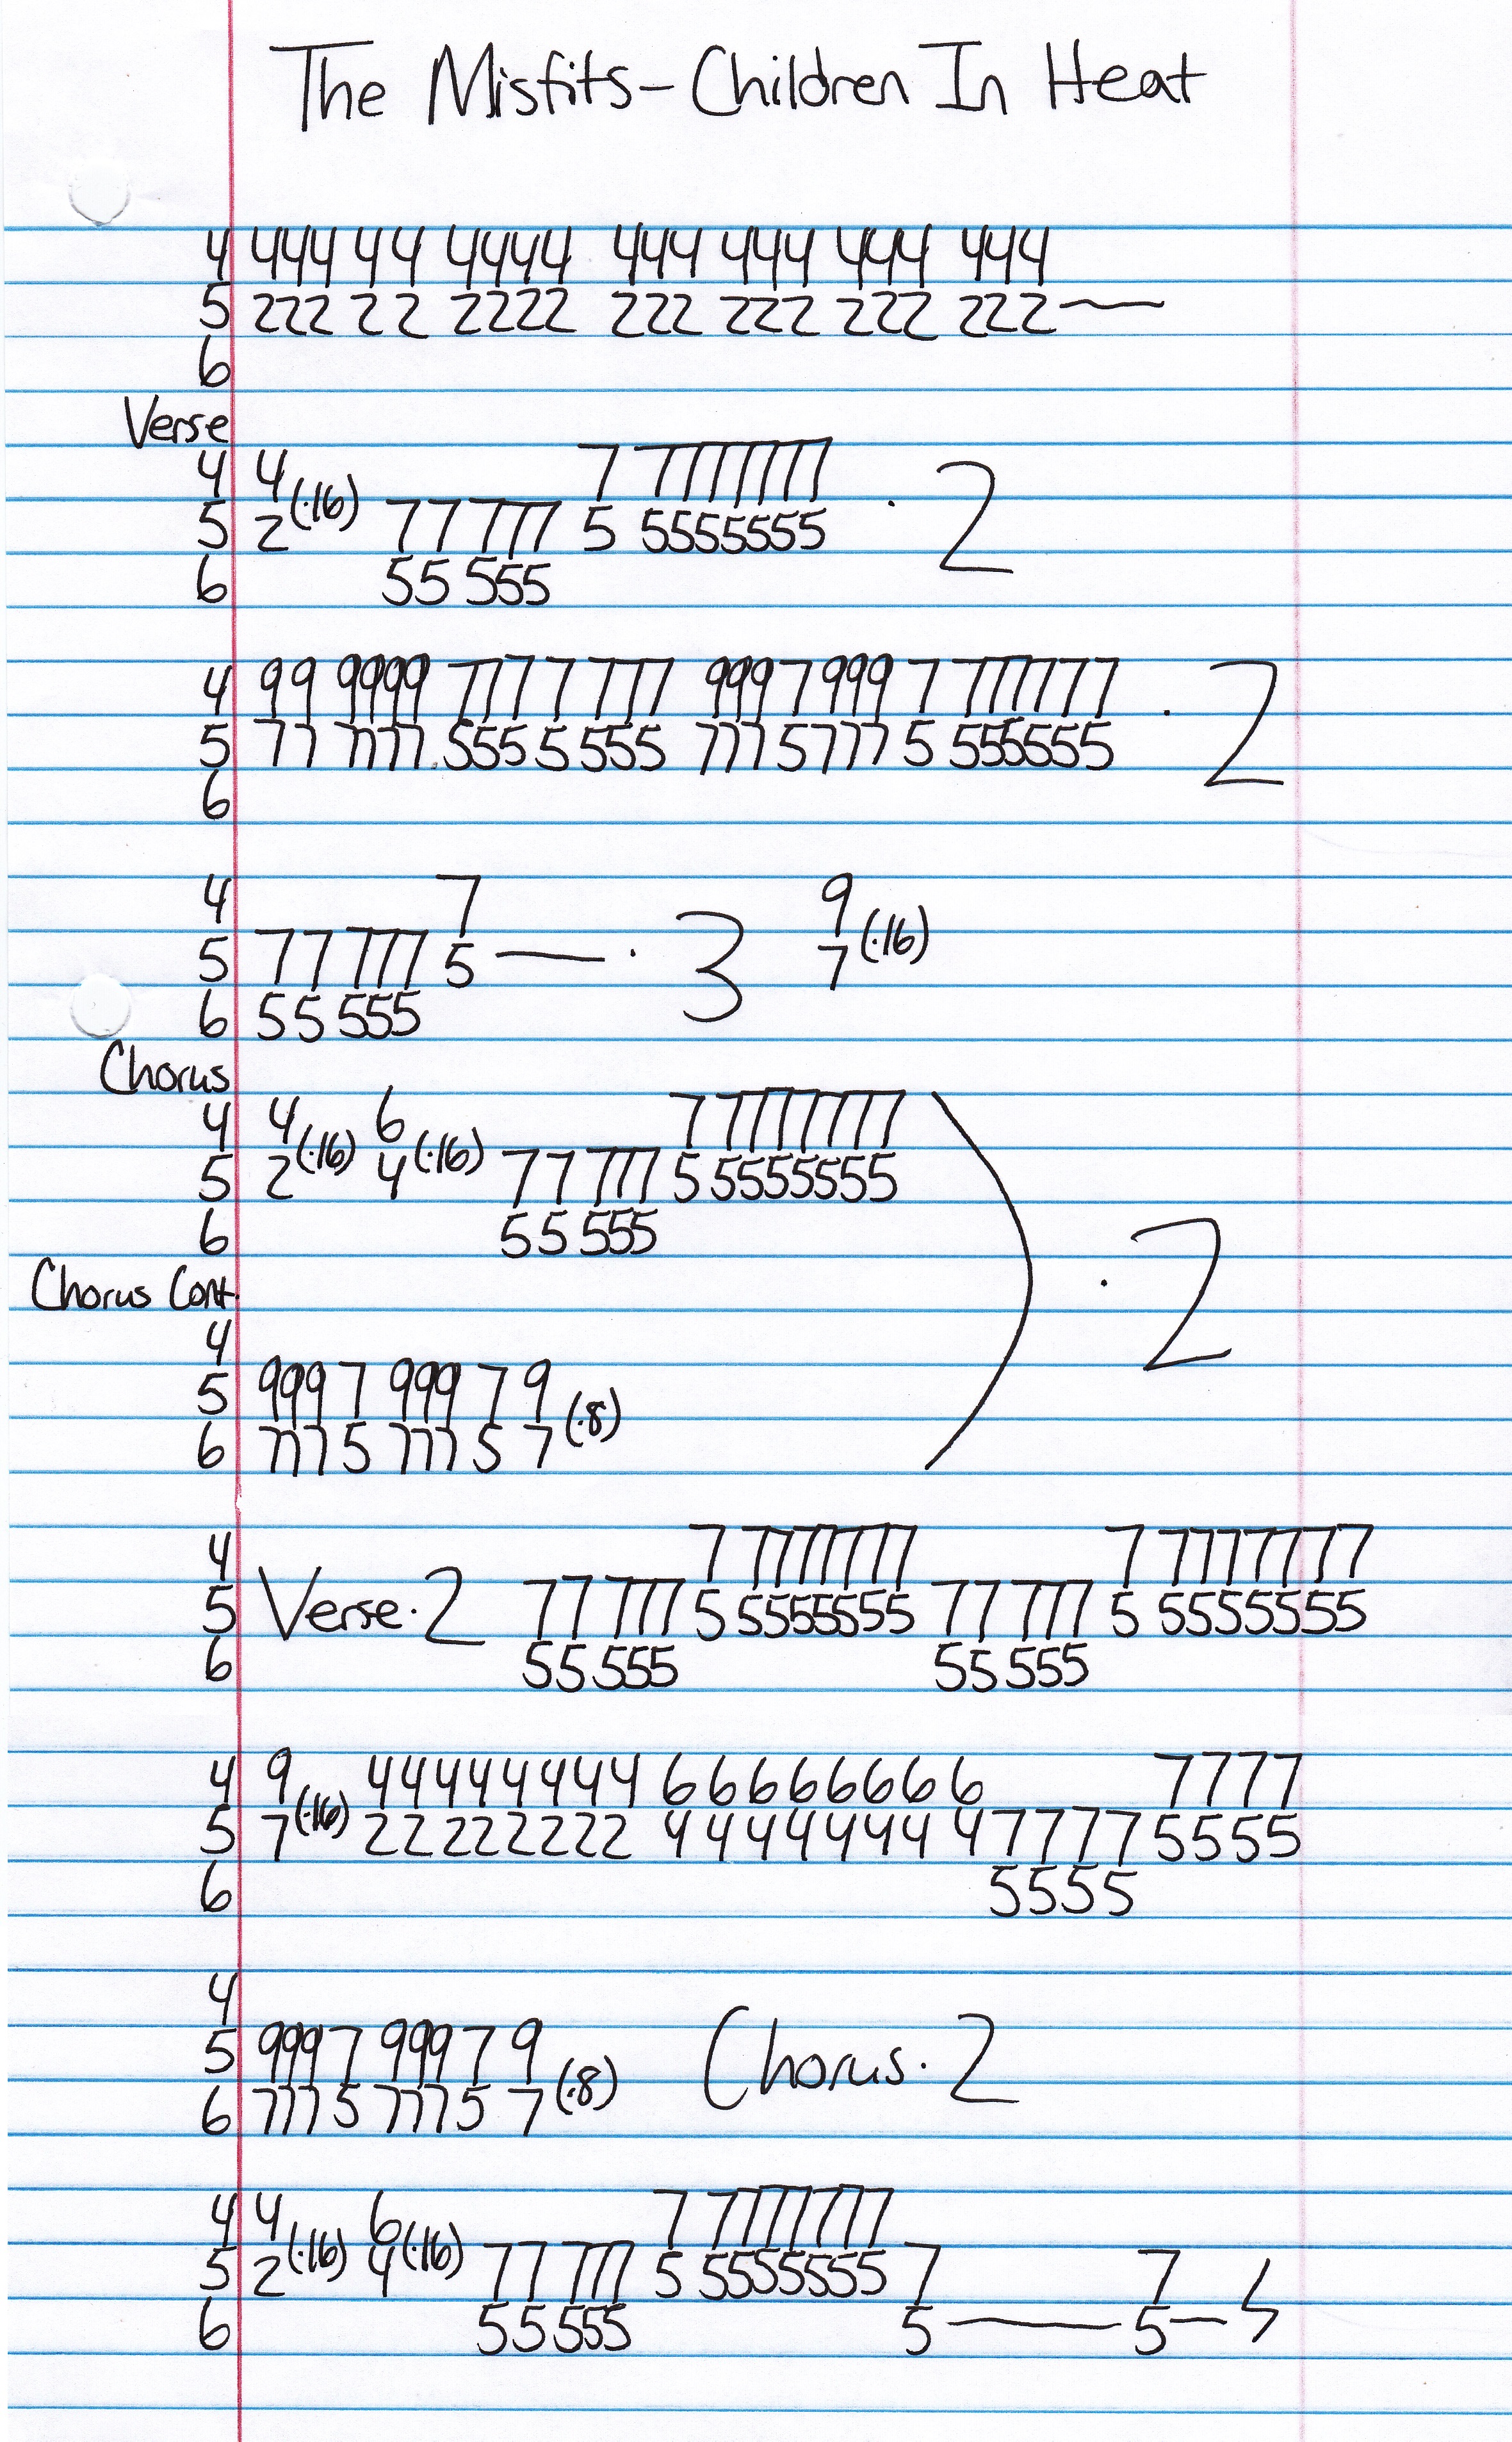 The Misfits - Children In Heat
4 444 44 4444 444 444 444 444
5 222 22 2222 222 222 222 222 —
6
Verse
4 4 7 7777777
5 2 (·16) 77 777 5 5555555 · 2
6 55 555
4 99 9999 777 7 777 999 7 999 7 777777 · 2
5 77 7777 555 5 555 777 5 777 5 555555
6
4 7 9
5 77 777 5 — · 3 7 (·16)
6 55 555
Chorus
4 4 6 7 7777777
5 2 (·16) 4 (·16) 77 777 5 5555555 )
6 55 555 · 2
Chorus Cont.
4
5 999 7 999 7 9
6 777 5 777 5 7 (·8)
4 7 7777777 7 7777777
5 Verse · 2 77 777 5 5555555 77 777 5 5555555
6 55 555 55 555
4 9 44444444 66666666 7777
5 7 (·16) 22222222 44444444 7777 5555
6 5555
4
5 999 7 999 7 9 Chorus · 2
6 777 5 777 5 7 (·8)
4 4 6 7 7777777
5 2 (·16) 4 (·16) 77 777 5 5555555 7 7
6 55 555 5 — 5 —